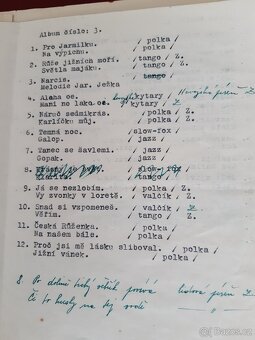 Album číslo: 3.
1. Pro Jarmilku. / polka /
Na výpichu. / polka /
2. Růže jižních moří. / tango / Z.
Světla majáku. / tango /
3. Narcis. / tango /
Melodie Jar. Ježka
4. Aloha oe. kytary / Havajská píseň Z
Mani no laka oe. kytary / Z.
5. Náruč sedmikrás. / polka /
Karlíčku můj. / polka /
6. Temná noc. / slow-fox /
Galop. / jazz /
7. Tanec se šavlemi. / jazz /
Gopak. / jazz /
8. / slow-fox /
9. Já se nezlobím. / polka / Z.
Vy zvonky v loretě. / valčík / Z.
10. Snad si vzpomeneš. / valčík / Z
Věřím. / tango /
11. Česká Růženka. / polka /
Na našem bále. / polka /
12. Proč jsi mě lásku sliboval. / polka /
Jižní vánek. / polka /
8. Po dolinách
Či to husy na tej vodě
bazos.cz